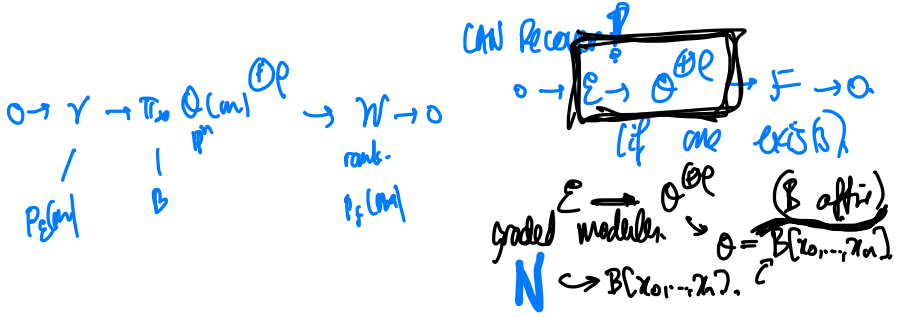 0 → V → π_* O(m)^{⊕p} → W → 0
P^n
rank.
P_E(m)
B
P_F(m)
CAN Recover!
0 → E → O^{⊕p} → F → 0
(if one exists)
E → O^{⊕p} (B affine)
graded modules
O = B[x_0,...,x_n]
N ↪ B[x_0,...,x_n].